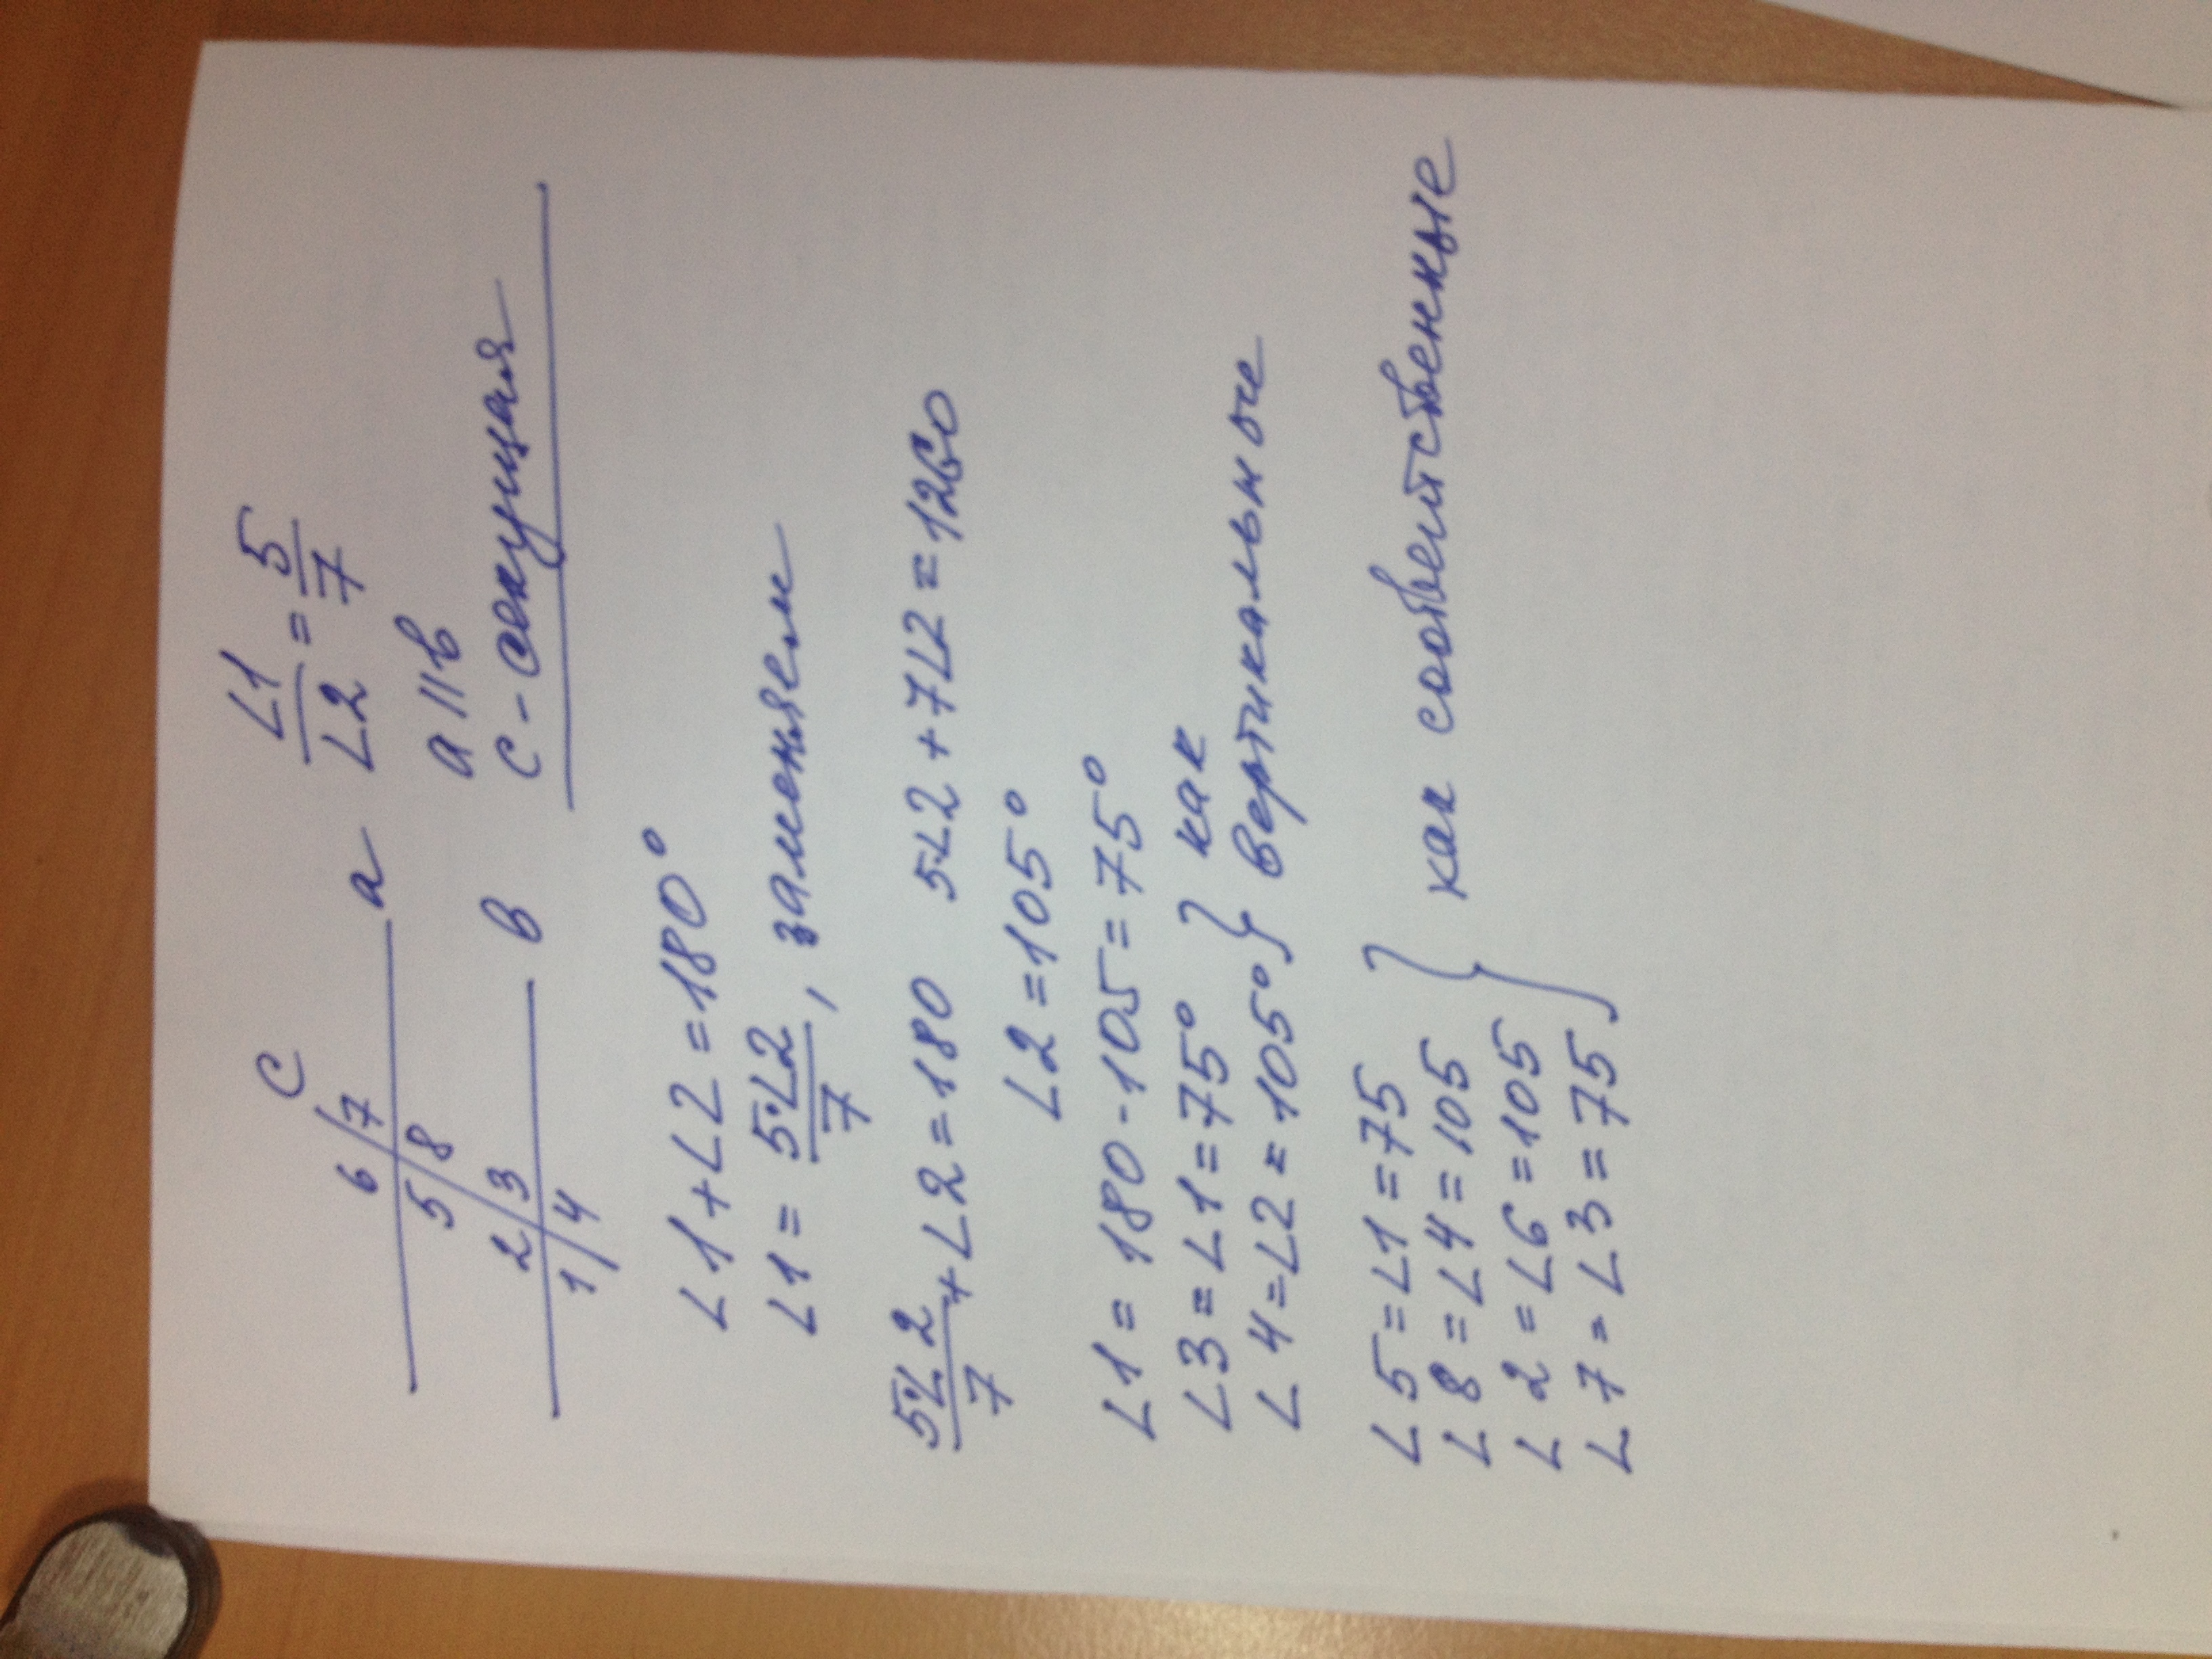 C
6 7 a
5 8
2 3 в
1 4
∠1/∠2 = 5/7
a || в
c - секущая
∠1 + ∠2 = 180°
∠1 = 5∠2/7, заменяем
5∠2/7 + ∠2 = 180 5∠2 + 7∠2 = 1260
∠2 = 105°
∠1 = 180 - 105 = 75°
∠3 = ∠1 = 75° } как
∠4 = ∠2 = 105° } вертикальные
∠5 = ∠1 = 75
∠8 = ∠4 = 105 } как соответственные
∠2 = ∠6 = 105
∠7 = ∠3 = 75